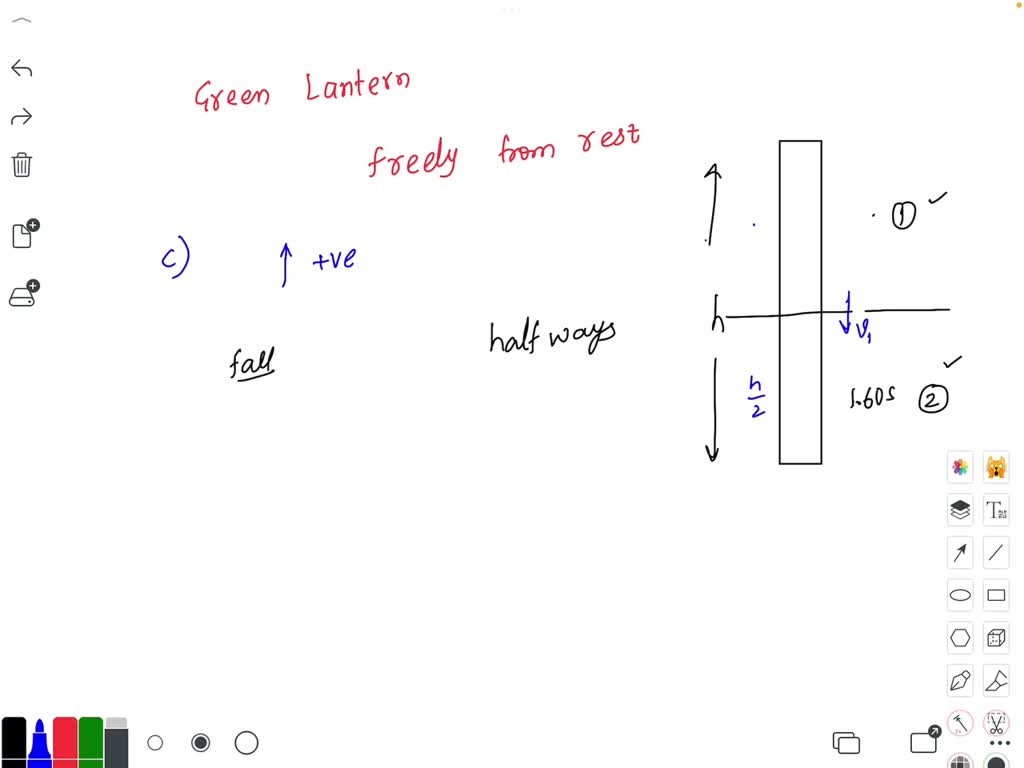 Green Lantern
freely from rest
①
c) ↑ +ve
h
v₁
half ways
fall
h/2
1.60s ②